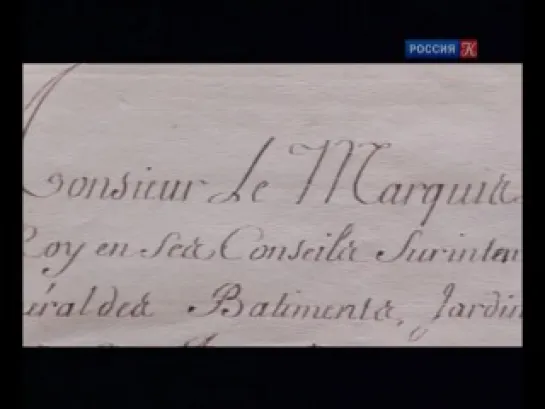 РОССИЯ К
Monsieur Le Marquis
Roy en Ses Conseils Surinten
éral des Batiments, Jardin